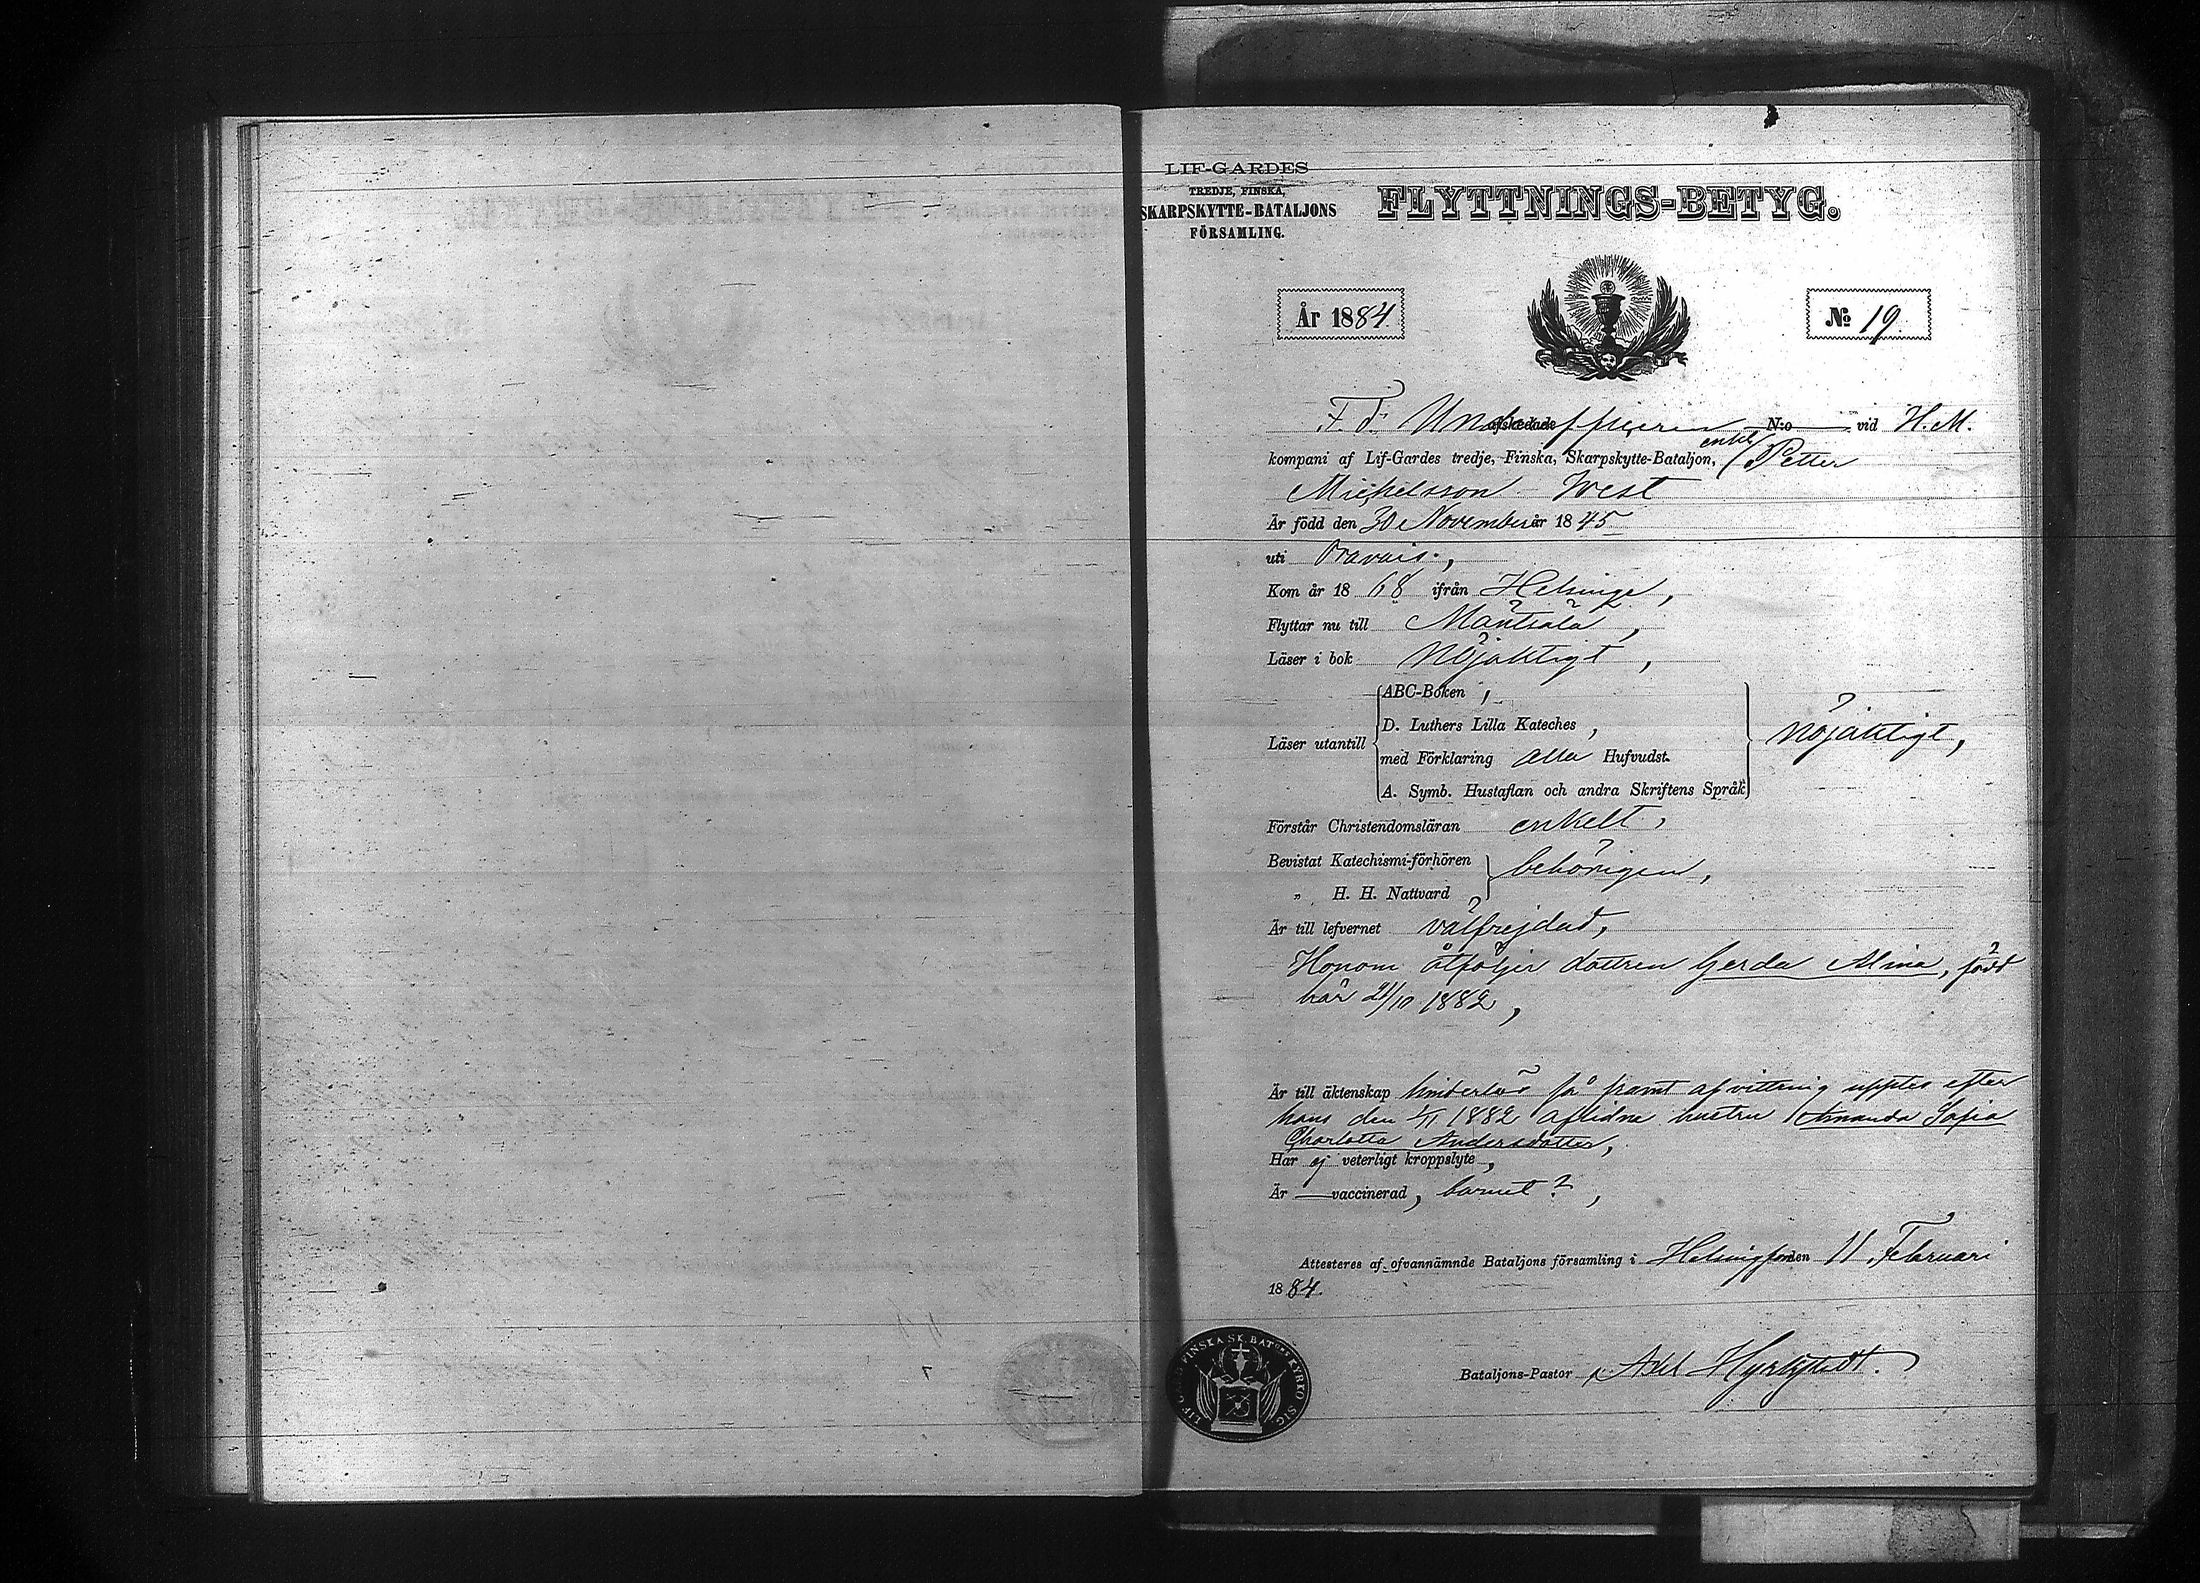 LIF-GARDES
TREDJE, FINSKA,
SKARPSKYTTE-BATALJONS
FÖRSAMLING.
FLYTTNINGS-BETYG.
År 1884.
No 19.
F. d. Underofficeren afskedade N:o vid H. M.
kompani af Lif-Gardes tredje, Finska, Skarpskytte-Bataljon, enkl. Petter
Michelsson West
Är född den 30 November år 1845
uti Oravais,
Kom år 1868 ifrån Helsinge,
Flyttar nu till Mäntsälä,
Läser i bok Nöjaktigt,
Läser utantill
ABC-Boken,
D. Luthers Lilla Kateches,
med Förklaring alla Hufvudst.
A. Symb. Hustaflan och andra Skriftens Språk
nöjaktigt,
Förstår Christendomsläran enkelt,
Bevistat Katechismi-förhören
„ H. H. Nattvard
behörigen,
Är till lefvernet välfrejdad,
Honom åtföljer dottren Gerda Alina, född
här 21/10 1882,
Är till äktenskap hinderlös så framt afvittring upptes efter
hans den 1882 aflidna hustru Amanda Sofia
Charlotta Andersdotter,
Har ej veterligt kroppslyte,
Är — vaccinerad, barnet?,
Attesteras af ofvannämnde Bataljons församling i Helsingfors den 11 Februari
1884.
Bataljons-Pastor Axel Hyrkstedt.
FINSKA SK. BAT:ONS KYRKO SIG